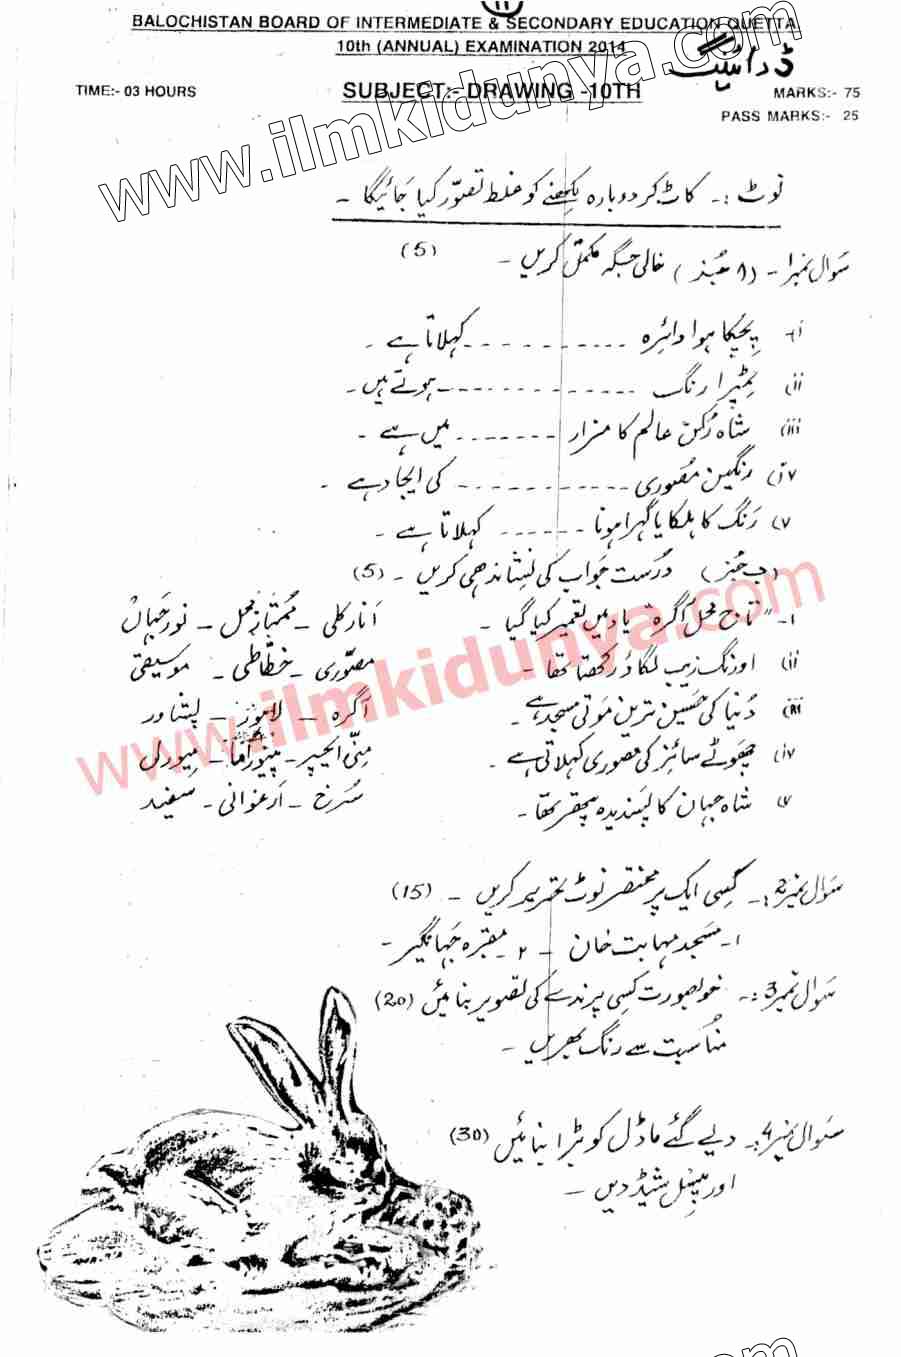 11
BALOCHISTAN BOARD OF INTERMEDIATE & SECONDARY EDUCATION QUETTA
10th (ANNUAL) EXAMINATION 2014
ڈرائینگ
TIME:- 03 HOURS SUBJECT:- DRAWING -10TH MARKS:- 75
PASS MARKS:- 25
www.ilmkidunya.com
نوٹ :۔ کاٹ کر دوبارہ لکھنے کو غلط تصوّر کیا جائیگا ۔
سوال نمبر 1 - (ا حُبز) خالی جگہ مکمل کریں ۔ (5)
i) پچکا ہوا دائرہ ---------- کہلاتا ہے ۔
ii) رنگ ------------ ہوتے ہیں ۔
iii) شاہ رُکن عالم کا مزار ------- میں ہے ۔
iv) رنگین مصوری ----------- کی ایجاد ہے ۔
v) رنگ کا ہلکا یا گہرا ہونا ------ کہلاتا ہے ۔
(ب جُز) درست جواب کی نشاندھی کریں ۔ (5)
i - "تاج محل آگرہ" یاد میں تعمیر کیا گیا ۔ انارکلی ۔ ممتاز محل ۔ نور جہاں
ii) اورنگ زیب لگاؤ رکھتا تھا ۔ مصوّری ۔ خطّاطی ۔ موسیقی
iii) دُنیا کی حسین ترین موتی مسجد ہے ۔ آگرہ ۔ لاہور ۔ پشاور
iv) چھوٹے سائز کی مصوری کہلاتی ہے ۔ منی ایچر ۔ ۔ میورل
v) شاہ جہان کا پسندیدہ پتھر تھا ۔ سُرخ ۔ ارغوانی ۔ سفید
www.ilmkidunya.com
سوال نمبر 2 :۔ کسی ایک پر مختصر نوٹ تحریر کریں ۔ (15)
۱ - مسجد مہابت خان ۔ ۲ - مقبرہ جہانگیر ۔
سوال نمبر 3 :۔ خوبصورت کسی پرندے کی تصویر بنائیں (20)
مناسبت سے رنگ بھریں ۔
سوال نمبر 4 :۔ دیے گئے ماڈل کو بڑا بنائیں (30)
اور پنسل شیڈ دیں ۔